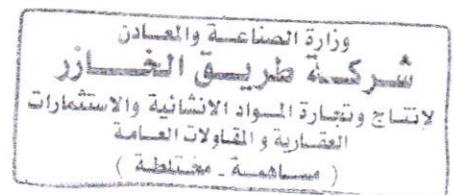 وزارة الصناعة والمعادن
شركة طريق الخازر
لانتاج وتجارة المواد الانشائية والاستثمارات
العقارية و المقاولات العامة
( مساهمة - مختلطة )